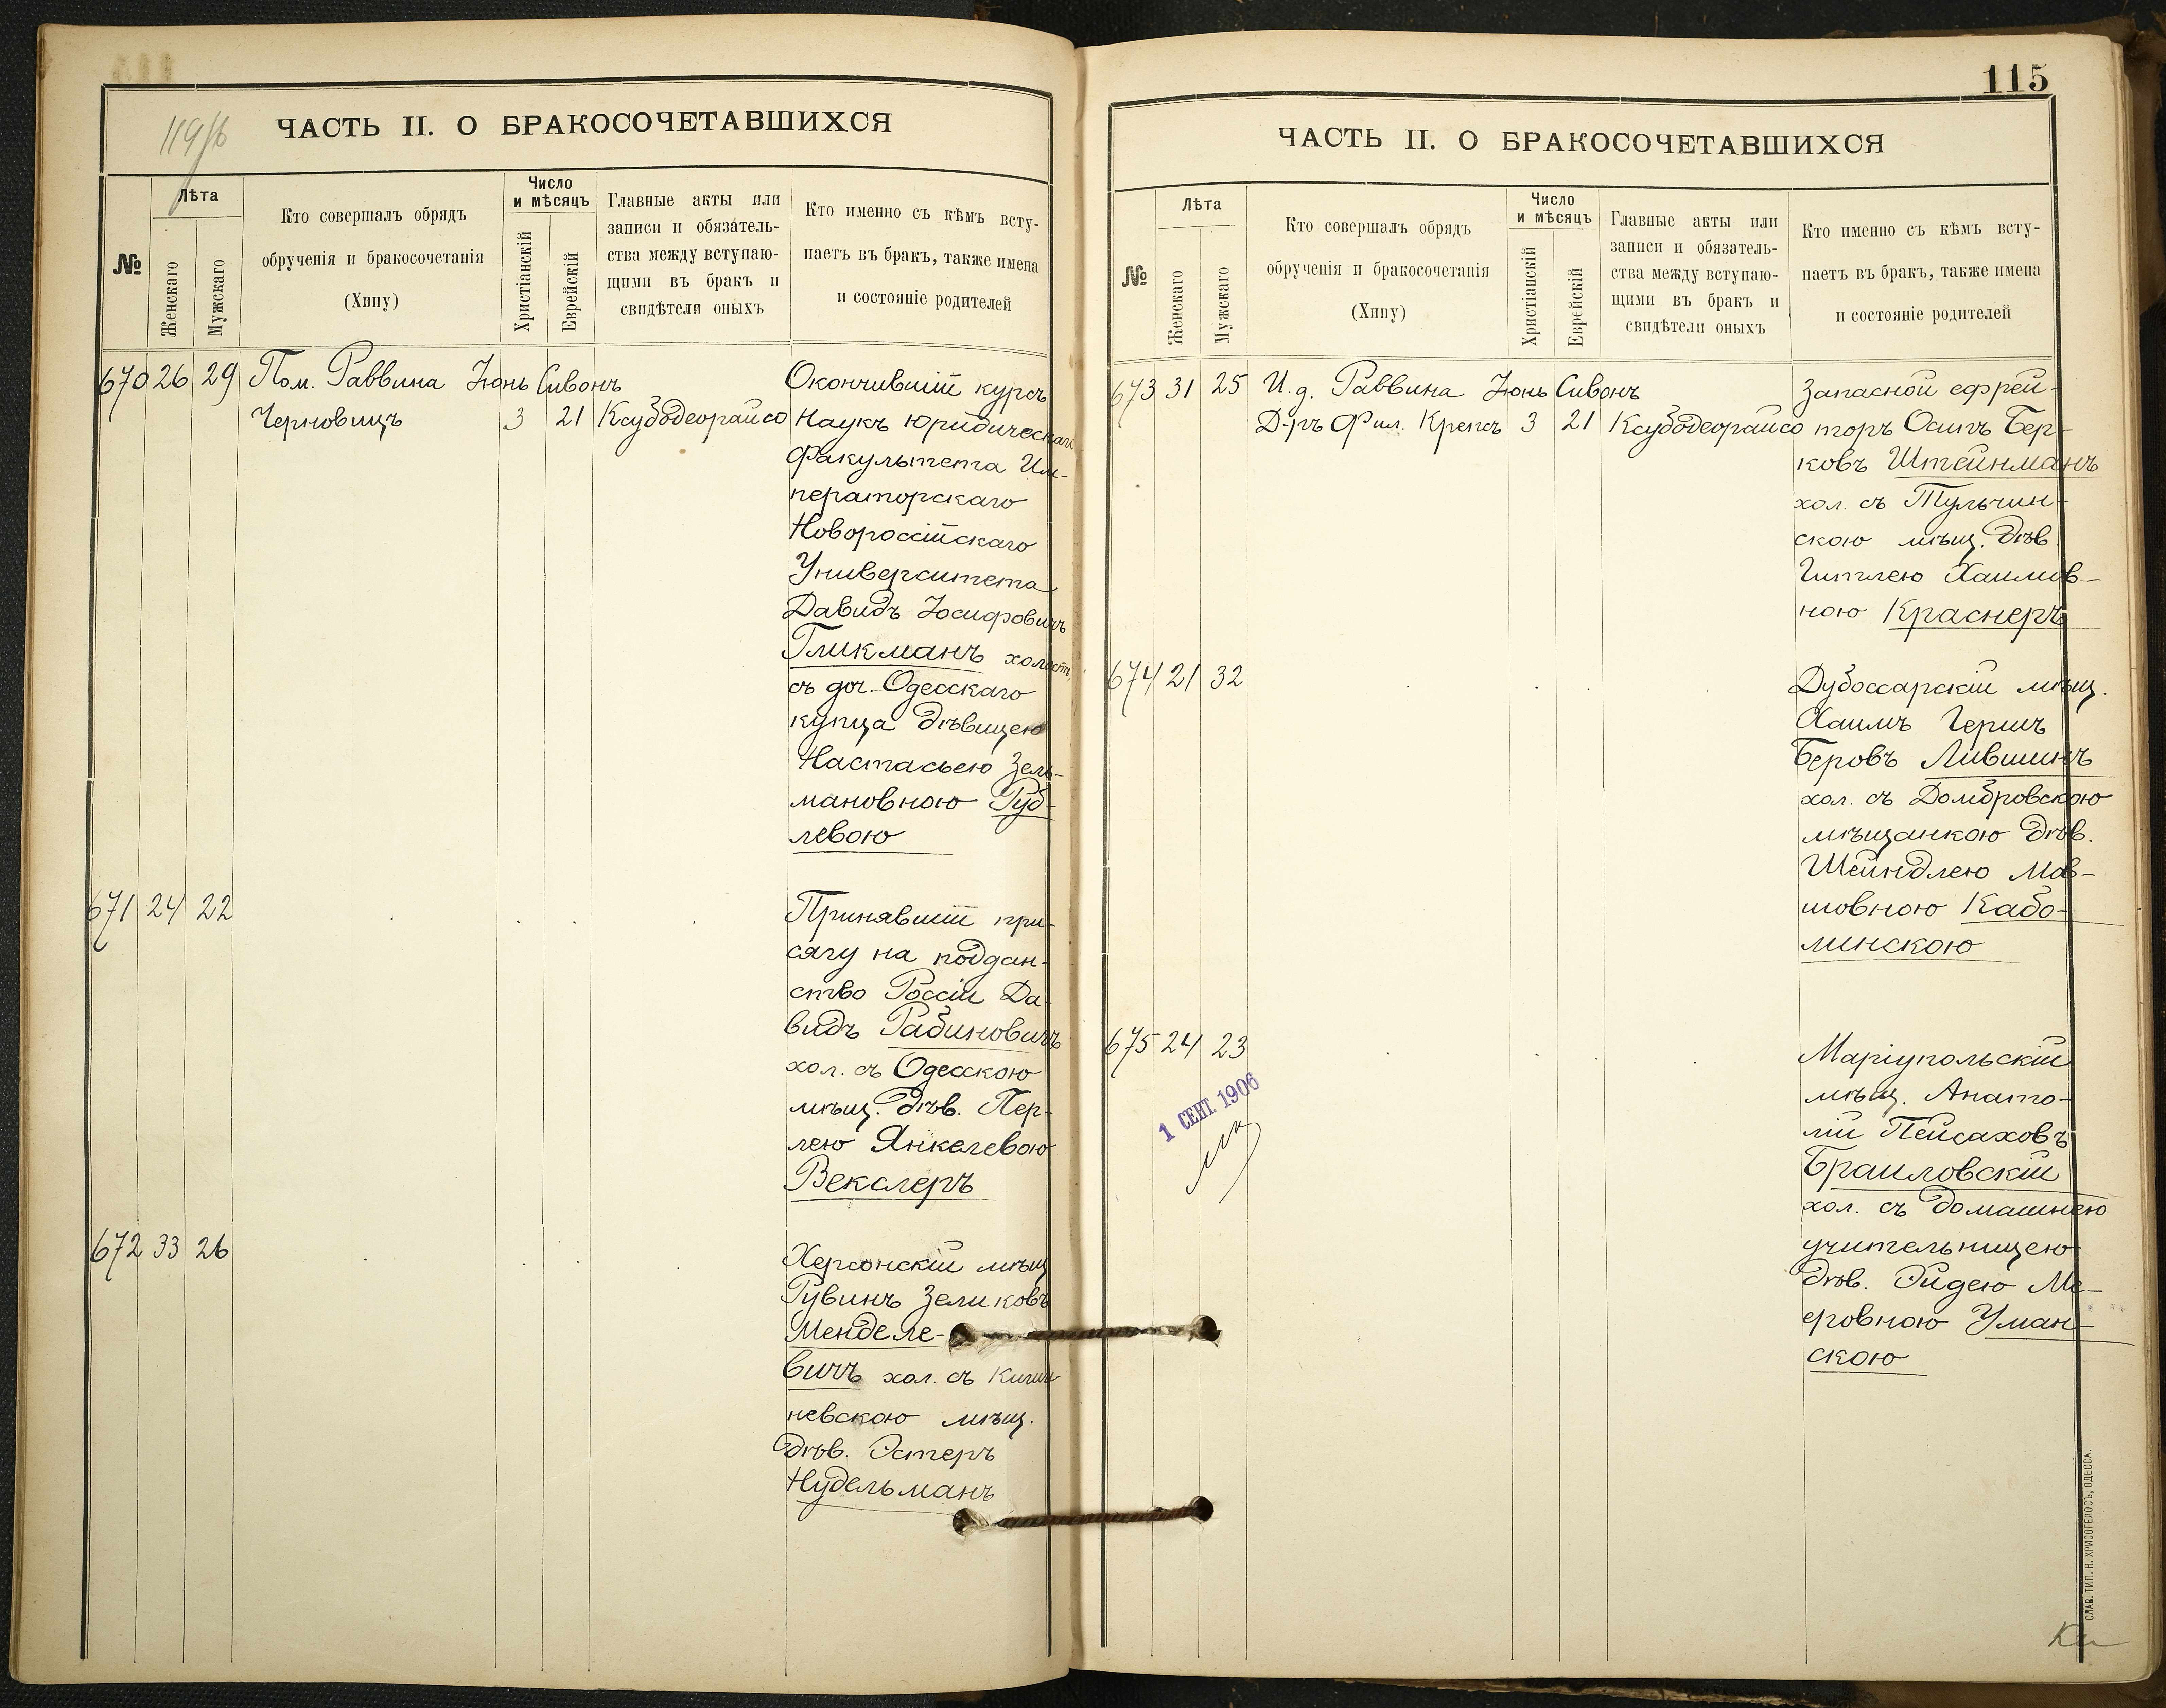 119/б
ЧАСТЬ II. О БРАКОСОЧЕТАВШИХСЯ
№
Лѣта
Женскаго
Мужскаго
Кто совершалъ обрядъ
обрученія и бракосочетанія
(Хипу)
Число
и мѣсяцъ
Христіанскій
Еврейскій
Главные акты или
записи и обязатель-
ства между вступаю-
щими въ бракъ и
свидѣтели оныхъ
Кто именно съ кѣмъ всту-
паетъ въ бракъ, также имена
и состояніе родителей
670 26 29 Пом. Раввина Іюнь Сивонъ Окончившій курсъ
Черновицъ 3 21 Ксубодеорайсо Наукъ Юридическаго
Факультета Им-
ператорскаго
Новороссійскаго
Университета
Давидъ Іосифовичъ
Гликманъ холост.
съ доч. Одесскаго
купца дѣвицею
Настасьею Зель-
мановною Руб-
левою
671 24 22 Принявшій при-
сягу на поддан-
ство Россіи Да-
видъ Рабиновичъ
хол. съ Одесскою
мѣщ. дѣв. Пер-
лею Янкелевою
Векслеръ
672 33 26 Херсонскій мѣщ
Рувинъ Зеликовъ
Менделе-
вичъ хол. съ Киши
невскою мѣщ.
дѣв. Эстеръ
Нудельманъ
115
ЧАСТЬ II. О БРАКОСОЧЕТАВШИХСЯ
№
Лѣта
Женскаго
Мужскаго
Кто совершалъ обрядъ
обрученія и бракосочетанія
(Хипу)
Число
и мѣсяцъ
Христіанскій
Еврейскій
Главные акты или
записи и обязатель-
ства между вступаю-
щими въ бракъ и
свидѣтели оныхъ
Кто именно съ кѣмъ всту-
паетъ въ бракъ, также имена
и состояніе родителей
673 31 25 И.д. Раввина Іюнь Сивонъ Запасной ефрей-
Д-ръ Фил. Крепсъ 3 21 Ксубодеорайсо торъ Осипъ Бер-
ковъ Штейнманъ
хол. съ Тульчин-
скою мѣщ. дѣв.
Гитлею Хаимов-
ною Краснеръ
674 21 32 Дубоссарскій мѣщ.
Хаимъ Гершъ
Беровъ Лившинъ
хол. съ Домбровскою
мѣщанкою дѣв.
Шейндлею Мов-
шовною Кабо-
минскою
675 24 23 Маріупольскій
мѣщ. Анато-
лій Пейсаховъ
Браиловскій
хол. съ домашнею
учительницею
дѣв. Эйдею Ме-
еровною Уман-
скою
1 СЕНТ. 1906
СЛАВ. ТИП. Н. ХРИСОГЕЛОСЪ, ОДЕССА.